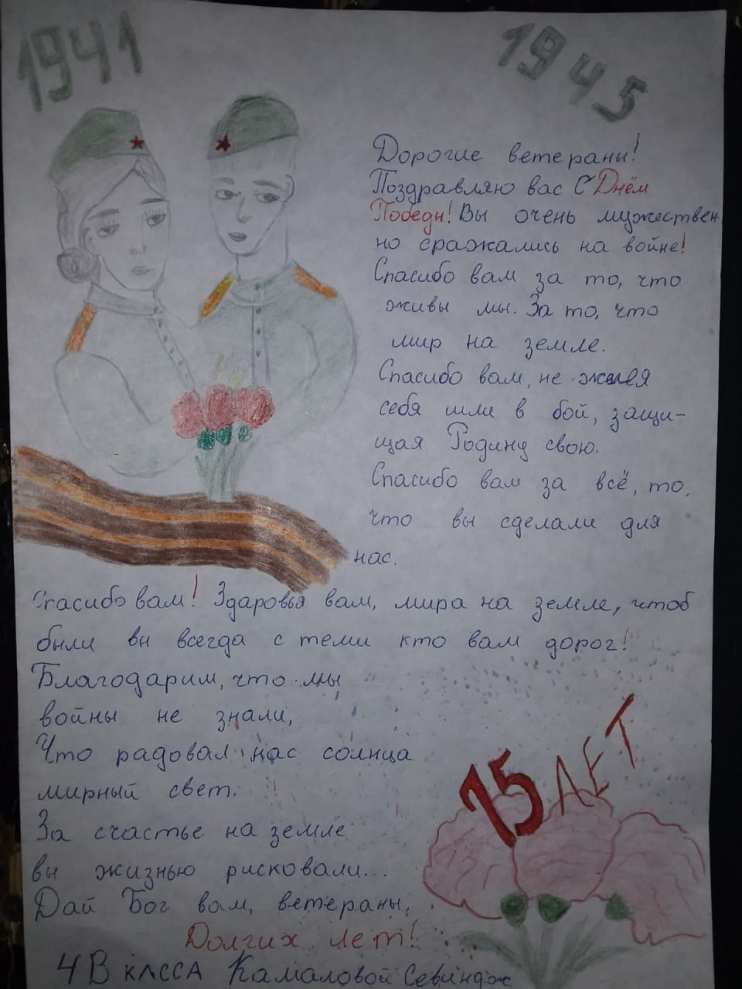 1941
1945
Дорогие ветераны!
Поздравляю вас С Днём
Победы! Вы очень мужествен
но сражались на войне!
Спасибо вам за то, что
живы мы. За то, что
мир на земле.
Спасибо вам, не жалея
себя шли в бой, защи-
щая Родину свою.
Спасибо вам за всё, то,
что вы сделали для
нас.
Спасибо вам! Здаровья вам, мира на земле, чтоб
были вы всегда с теми кто вам дорог!
Благодарим, что мы
войны не знали,
Что радовал нас солнца
мирный свет.
За счастье на земле
вы жизнью рисковали...
Дай Бог вам, ветераны,
Долгих лет!
75 ЛЕТ
4 В класса Камаловой Севиндж